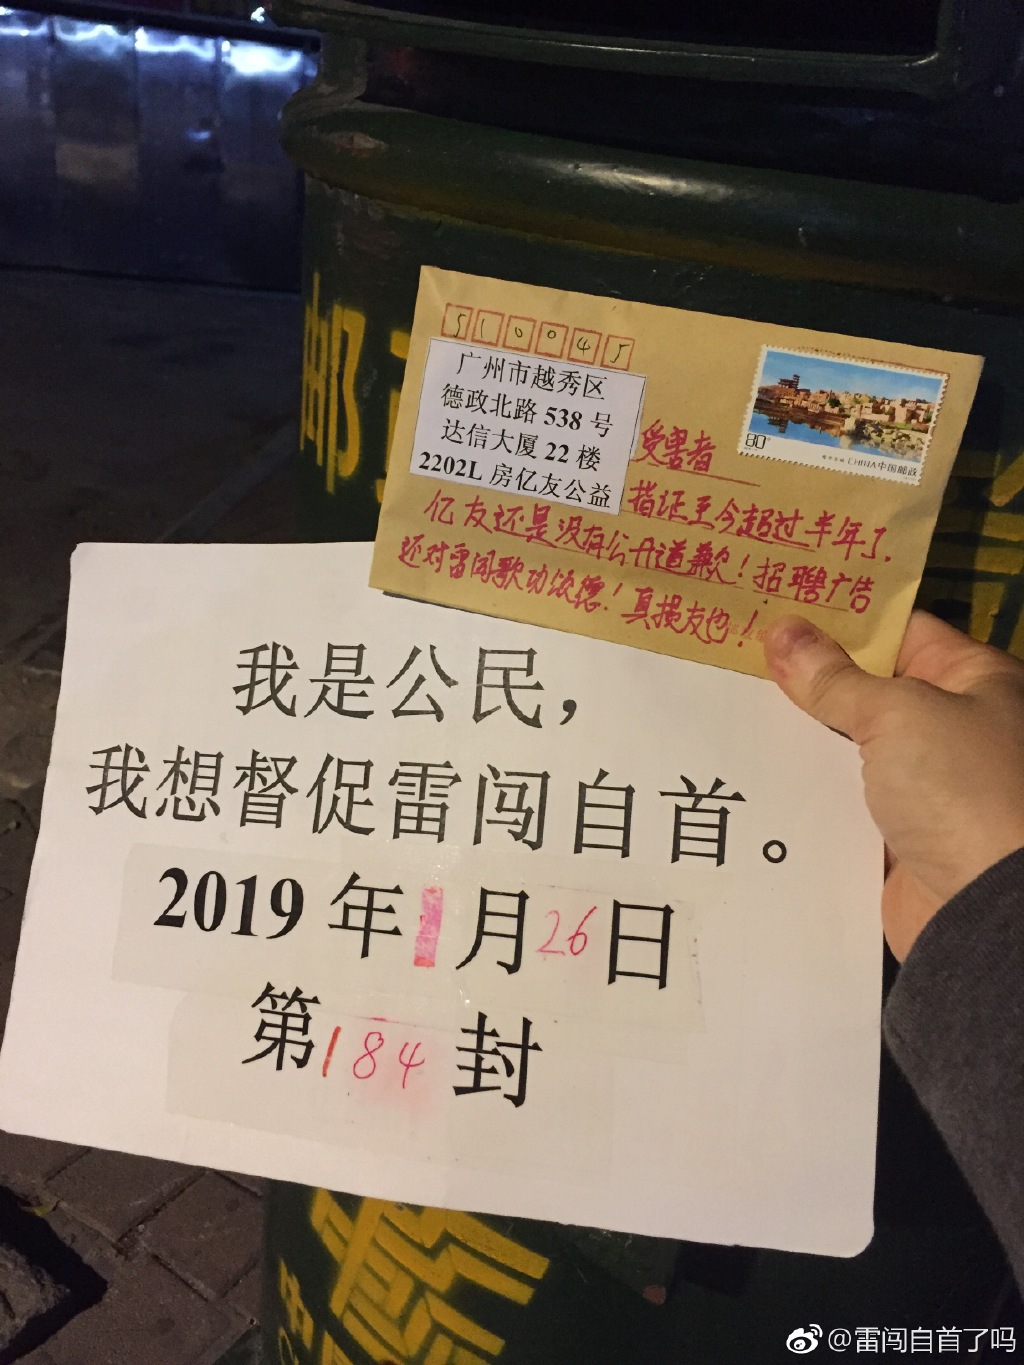 510045
广州市越秀区
德政北路 538 号
达信大厦 22 楼
2202L 房亿友公益
80分
CHINA 中国邮政
受害者
指证至今超过半年了，
亿友还是没有公开道歉！招聘广告
还对雷闯歌功颂德！真损友也！
邮
我是公民，
我想督促雷闯自首。
2019 年 1 月 26 日
第 184 封
@雷闯自首了吗